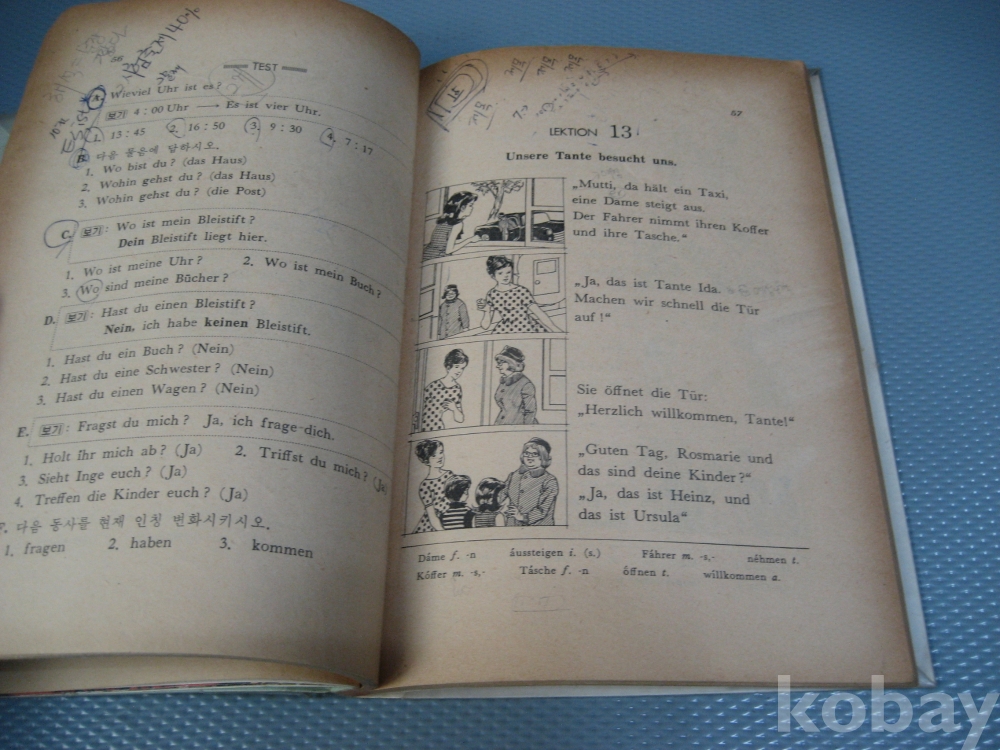 66
TEST
A. Wieviel Uhr ist es?
보기 4 : 00 Uhr ⟶ Es ist vier Uhr.
1. 13 : 45 2. 16 : 50 3. 9 : 30 4. 7 : 17
B. 다음 물음에 답하시오.
1. Wo bist du? (das Haus)
2. Wohin gehst du? (das Haus)
3. Wohin gehst du? (die Post)
C. 보기 : Wo ist mein Bleistift?
Dein Bleistift liegt hier.
1. Wo ist meine Uhr? 2. Wo ist mein Buch?
3. Wo sind meine Bücher?
D. 보기 : Hast du einen Bleistift?
Nein, ich habe keinen Bleistift.
1. Hast du ein Buch? (Nein)
2. Hast du eine Schwester? (Nein)
3. Hast du einen Wagen? (Nein)
E. 보기 : Fragst du mich? Ja, ich frage dich.
1. Holt ihr mich ab? (Ja) 2. Triffst du mich? (Ja)
3. Sieht Inge euch? (Ja)
4. Treffen die Kinder euch? (Ja)
F. 다음 동사를 현재 인칭 변화시키시오.
1. fragen 2. haben 3. kommen
67
LEKTION 13
Unsere Tante besucht uns.
„Mutti, da hält ein Taxi,
eine Dame steigt aus.
Der Fahrer nimmt ihren Koffer
und ihre Tasche."
„Ja, das ist Tante Ida.
Machen wir schnell die Tür
auf!"
Sie öffnet die Tür:
„Herzlich willkommen, Tante!"
„Guten Tag, Rosmarie und
das sind deine Kinder?"
„Ja, das ist Heinz, und
das ist Ursula"
Dáme f. -n áussteigen i. (s.) Fáhrer m. -s,- néhmen t.
Kóffer m. -s,- Tásche f. -n öffnen t. willkommen a.
kobay